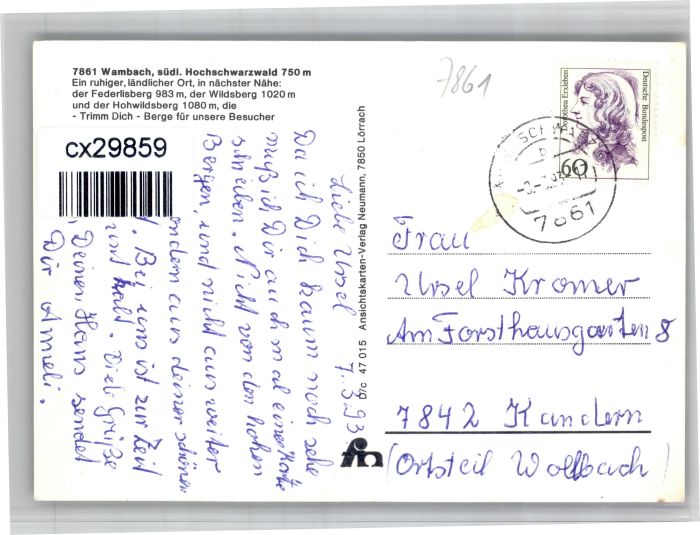 7861 Wambach, südl. Hochschwarzwald 750 m
Ein ruhiger, ländlicher Ort, in nächster Nähe:
der Federlisberg 983 m, der Wildsberg 1020 m
und der Hohwildsberg 1080 m, die
- Trimm Dich - Berge für unsere Besucher
cx29859
7861
Dorothea Erxleben
Deutsche Bundespost
60
7861
D/c 47 015 Ansichtskarten-Verlag Neumann, 7850 Lörrach
7.3.93
Liebe Ursel
Da ich Dich kaum noch sehe
muß ich Dir auch mal eine Karte
schreiben. Nicht von den hohen
Bergen, und nicht aus weiter
sondern aus deiner schönen
. Bei uns ist zur Zeit
und kalt. Viele Grüße
Deinen Hans sendet
Dir Anneli.
Frau
Ursel Kromer
Am Forsthausgarten 8
7842 Kandern
(Ortsteil Wollbach)